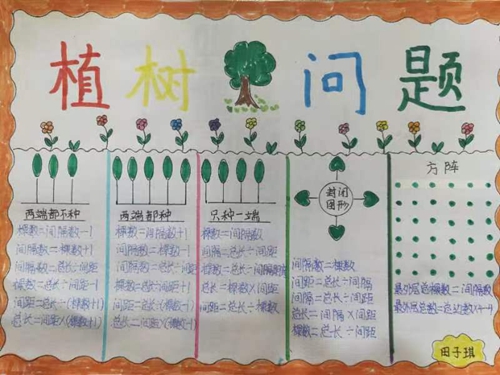 植树问题
两端都不种
棵数=间隔数-1
间隔数=棵数+1
间隔数=总长÷间距
间距=总长÷(棵数+1)
总长=间距×(棵数+1)
两端都种
棵数=间隔数+1
间隔数=棵数-1
间隔数=总长÷间距
间距=总长÷(棵数-1)
总长=间距×(棵数-1)
只种一端
棵数=间隔数
间隔数=总长÷间距
间距=总长÷棵数
封闭
图形
间隔数=棵数
间距=总长÷间隔
间隔=总长÷间距
总长=间隔×间距
棵数=总长÷间距
方阵
田子琪